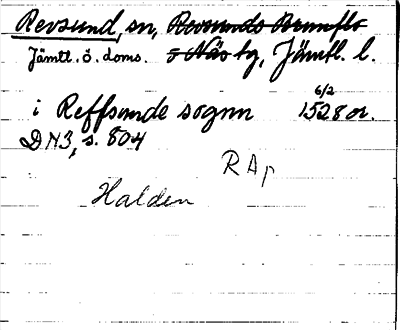 Revsund, sn, Revsunds Brunflo
Jämtl. ö. doms. o Näs tg, Jämtl. l.
i Reffsunde sognn 6/2 1528 or.
DN3, s. 804
RAp
Halden